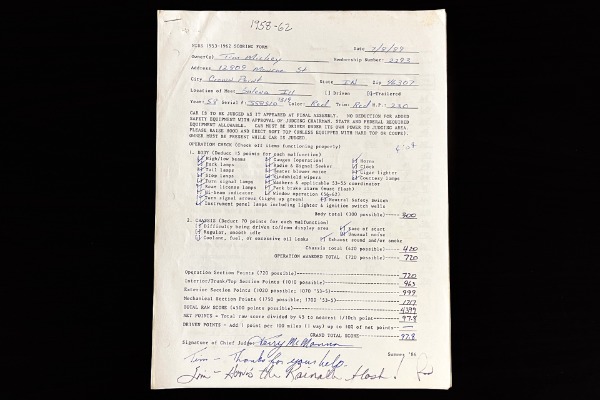 1958-62
NCRS 1953-1962 SCORING FORM Date 7/8/89
Owner(s) Tim Mickey Membership Number 2293
Address 12809 Monroe St
City Crown Point State IN Zip 46307
Location of Meet Galena Ill Driven Trailered
Year: 58 Serial #: Color: Red Trim: Red H.P.: 230
CAR IS TO BE JUDGED AS IT APPEARED AT FINAL ASSEMBLY. NO DEDUCTION FOR ADDED
SAFETY EQUIPMENT WITH APPROVAL OF JUDGING CHAIRMAN. STATE AND FEDERAL REQUIRED
EQUIPMENT ALLOWABLE. CAR MUST BE DRIVEN UNDER ITS OWN POWER TO JUDGING AREA.
PLEASE RAISE HOOD AND ERECT SOFT TOP (UNLESS EQUIPPED WITH HARD TOP OR COUPE).
OWNER MUST BE PRESENT WHILE CAR IS JUDGED.
OPERATION CHECK (Check off items functioning properly)
1. BODY (Deduct 15 points for each malfunction)
High/low beams Gauges (operation) Horns
Park lamps Radio & Signal Seeker Clock
Tail lamps Heater blower motor Cigar lighter
Stop lamps Windshield wipers Courtesy lamps
Turn signal lamps Washers & applicable 53-55 coordinator
Rear license lamps Park brake alarm (must flash)
Hi-beam indicator Window operation (56-62)
Turn signal arrows (Light up green) Neutral Safety Switch
Instrument panel lamps including lighter & ignition switch wells
Body total (300 possible) 300
2. CHASSIS (Deduct 70 points for each malfunction)
Difficulty being driven to/from display area Ease of start
Regular, smooth idle Unusual noise
Coolant, fuel, or excessive oil leaks Exhaust sound and/or smoke
Chassis total (420 possible) 420
OPERATION AWARDED TOTAL (720 possible) 720
Operation Section Points (720 possible) 720
Interior/Trunk/Top Section Points (1010 possible) 963
Exterior Section Points (1020 possible; 1070 '53-5) 999
Mechanical Section Points (1750 possible; 1700 '53-5) 1717
TOTAL RAW SCORE (4500 points possible) 4399
NET POINTS - Total raw score divided by 45 to nearest 1/10th point 97.8
DRIVEN POINTS - Add 1 point per 100 miles (1 way) up to 10% of net points —
GRAND TOTAL SCORE 97.8
Signature of Chief Judge Terry McManmon
Summer '86
Tim - Thanks for your help.
Jim - How's the Rainath Hash!